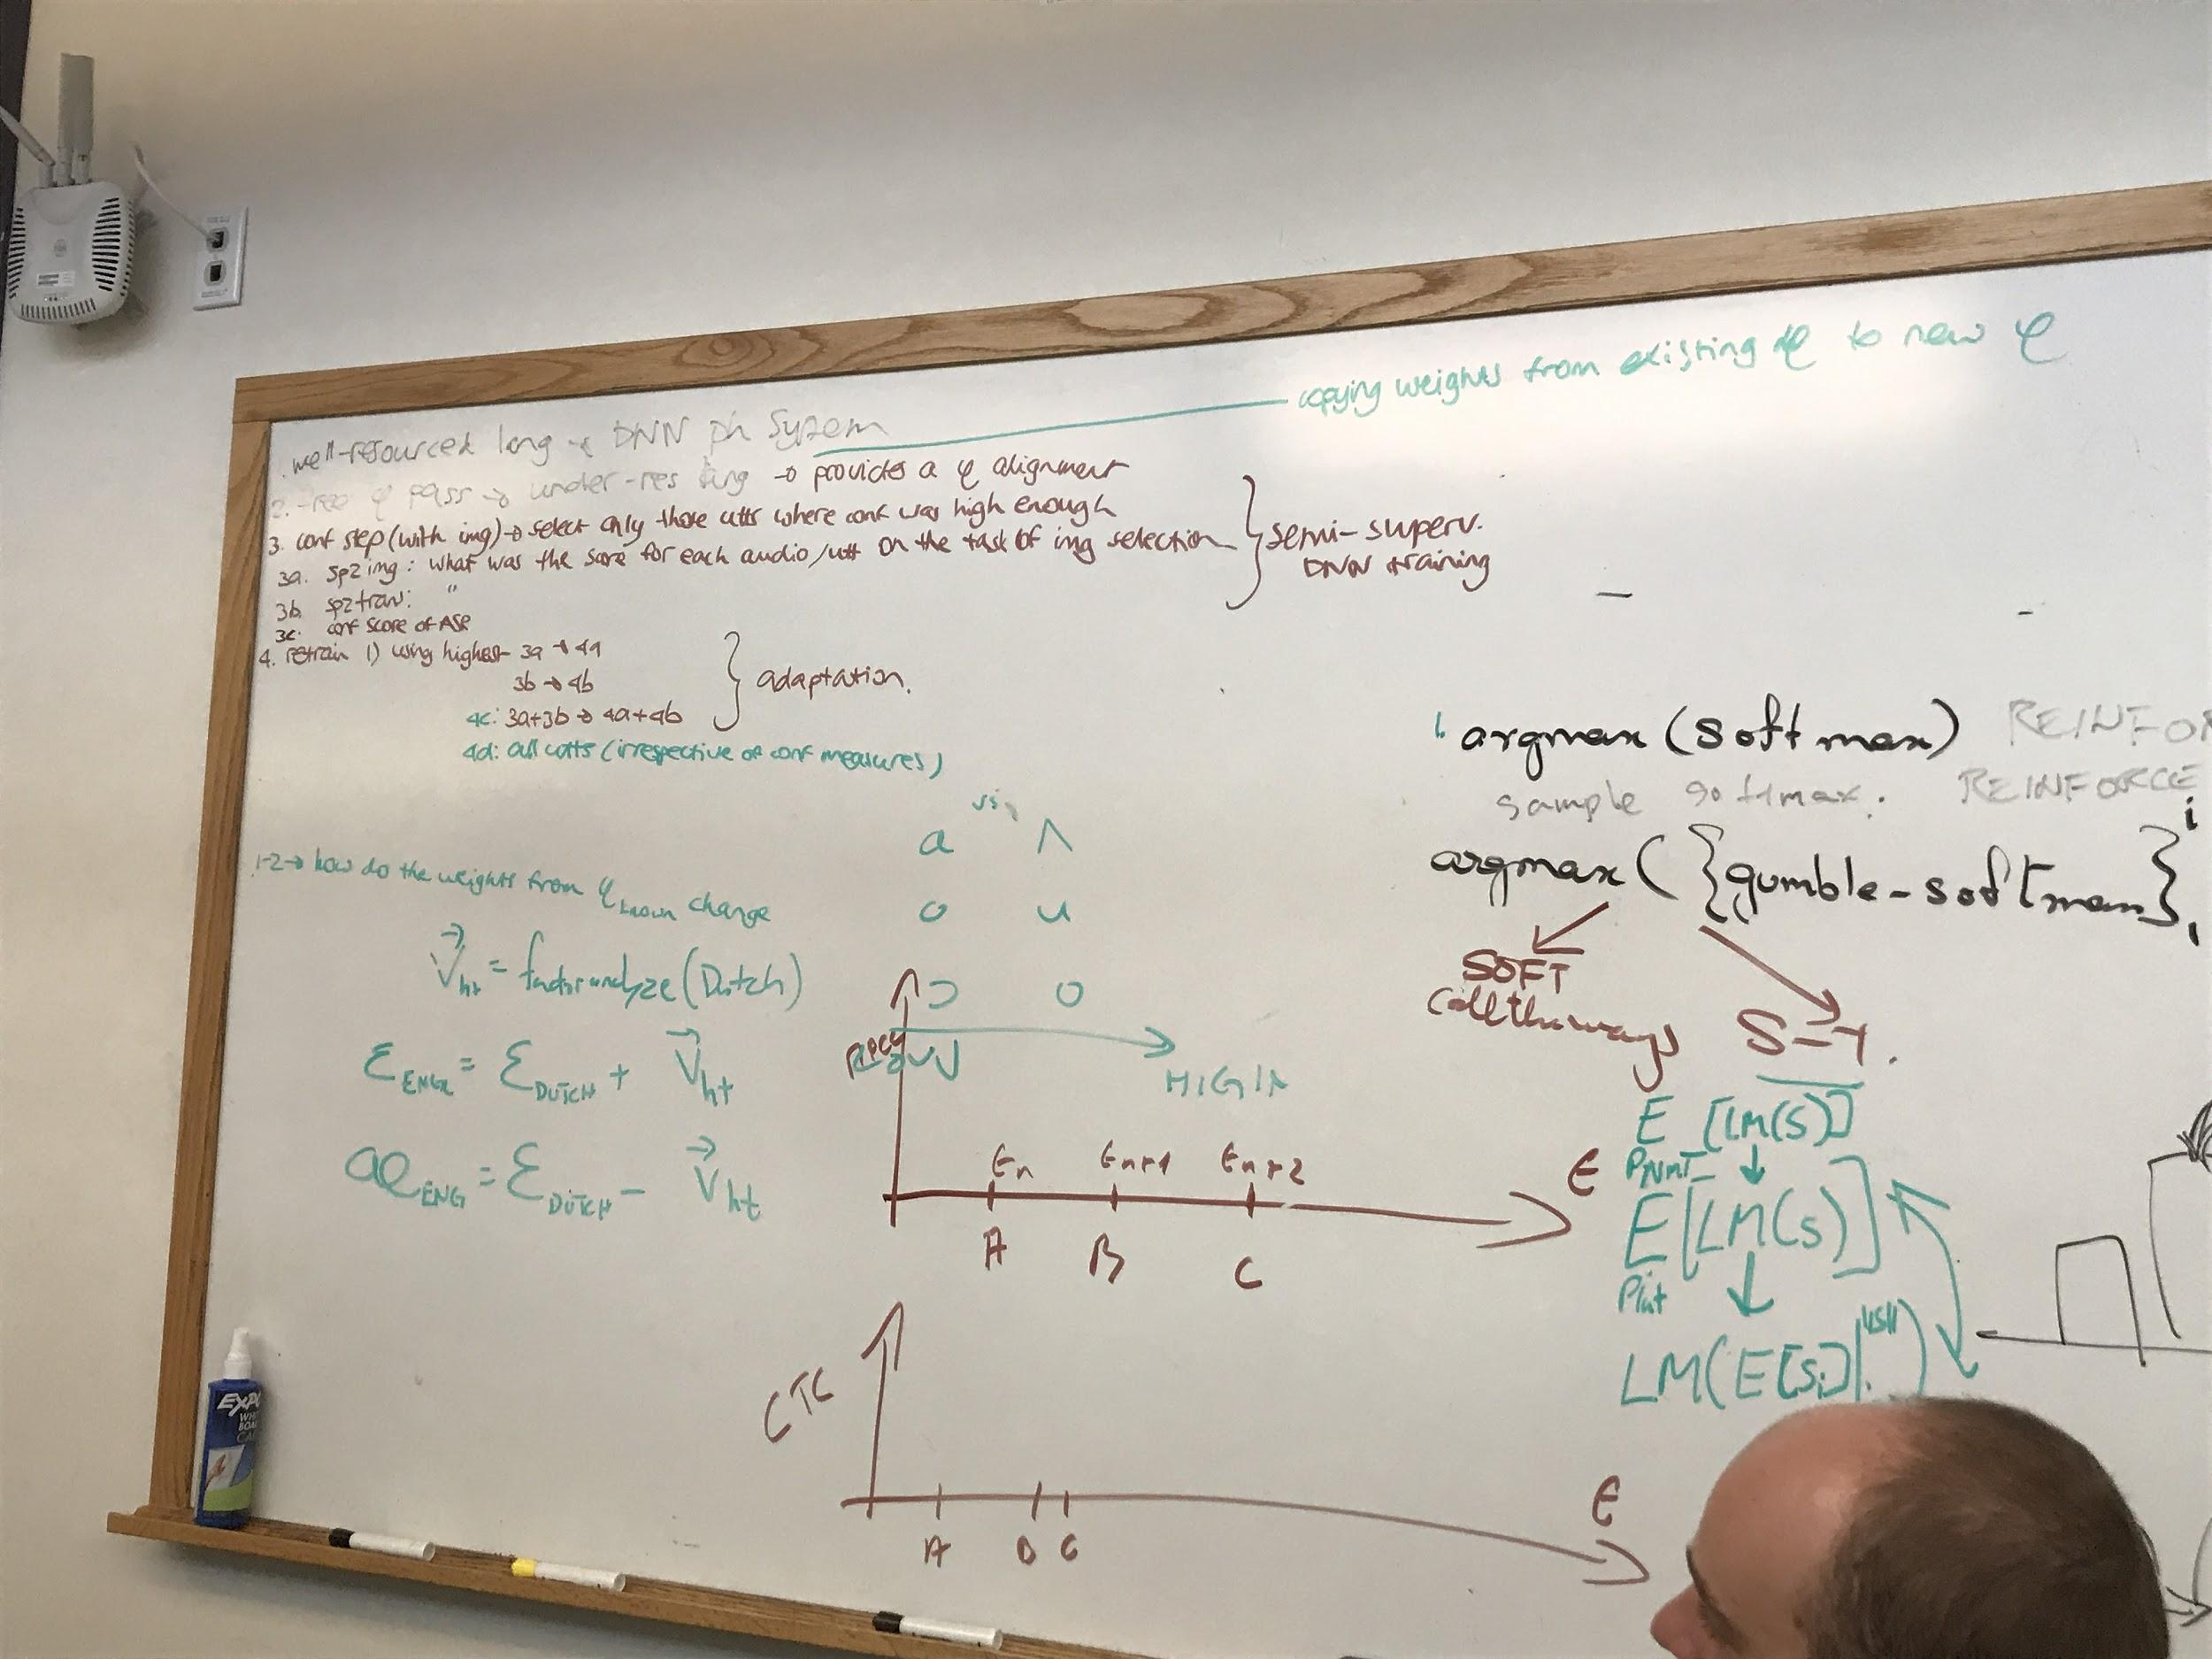 copying weights from existing φ to new φ
well-resourced lang → DNN ph system
2. φ pass → under-res lang → provides a φ alignment
3. conf step (with img) → select only those utts where conf was high enough
3a. sp2img: what was the score for each audio/utt on the task of img selection
3b. sp2tran: "
3c. conf score of ASR
semi-superv.
DNN training
4. retrain 1) using highest 3a → 4a
3b → 4b
4c: 3a+3b → 4a+4b
adaptation.
4d: all utts (irrespective of conf measures)
1-2 → how do the weights from φknown change
V⃗ht = factor analyze (Dutch)
ƐENG = ƐDUTCH + V⃗ht
æENG = ƐDUTCH − V⃗ht
a ʌ
o u
ɔ o
LOW
HIGH
En En+1 En+2
A B C
t
CTC
A B C
t
argmax (softmax) REINFOR
sample softmax. REINFORCE
argmax ({gumble-softmax}i
SOFT
all the ways
S-T.
E [LM(S)]
PNMT
E[LM(S)]
Pint
LM(E[Si]|
EXPO